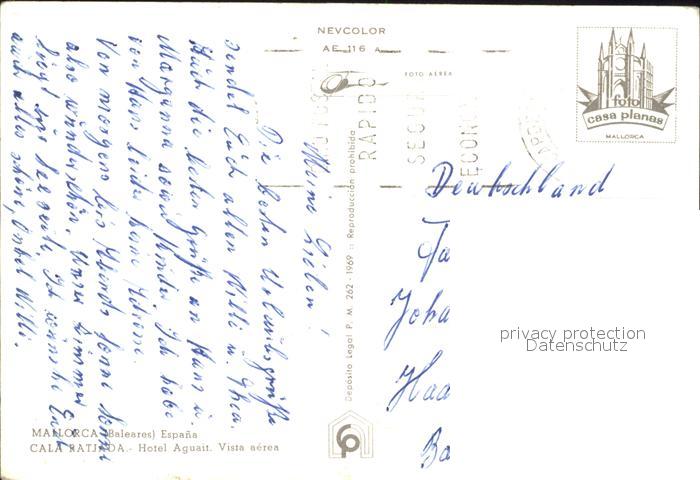 NEVCOLOR
AE 116 A
FOTO AEREA
RAPIDO
SEGUR
ECONO
foto
casa planas
MALLORCA
Meine Lieben!
Die besten Urlaubsgrüße
sendet Euch allen Willi u. Thea.
Auch die besten Grüße an Hans u.
Marganna sowie Kinder. Ich habe
von Hans leider keine Adresse.
Von morgens bis Abends Sonne
also wunderschön. Unser Zimmer
liegt zur Seeseite. Ich wünsche Euch
auch alles schöne, Onkel Willi.
Depósito Legal P. M. 262 - 1969 :: Reproducción prohibida
Deutschland
Fa
Joha
Haa
Ba
privacy protection
Datenschutz
MALLORCA (Baleares) España
CALA RATJADA.- Hotel Aguait. Vista aérea